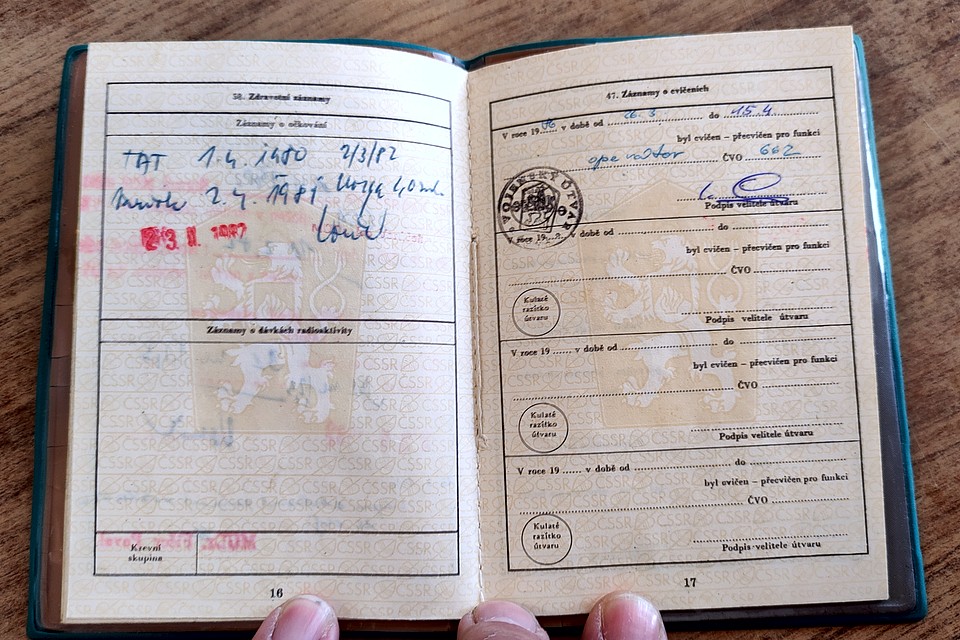 38. Zdravotní záznamy
Záznamy o očkování
TAT 1.4. 1980 2/3/82
2.4. 1981
23. 1987
Záznamy o dávkách radioaktivity
Krevní
skupina
16
47. Záznamy o cvičeních
V roce 19 86 v době od 26.3 do 15.4
byl cvičen – přecvičen pro funkci
operátor ČVO 662
Podpis velitele útvaru
VOJENSKÝ ÚTVAR
V roce 19 v době od do
byl cvičen – přecvičen pro funkci
ČVO
Kulaté
razítko
útvaru
Podpis velitele útvaru
V roce 19 v době od do
byl cvičen – přecvičen pro funkci
ČVO
Kulaté
razítko
útvaru
Podpis velitele útvaru
V roce 19 v době od do
byl cvičen – přecvičen pro funkci
ČVO
Kulaté
razítko
útvaru
Podpis velitele útvaru
17